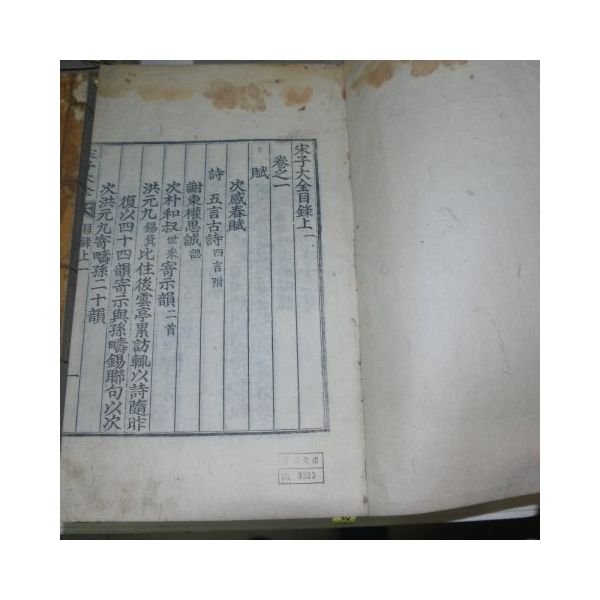 宋子大全目錄上
卷之一
賦
次感春賦
詩 五言古詩 四言附
謝東權思誠 諰
次朴和叔 世采 寄示韻 二首
洪元九 錫箕 比住後雲亭累訪輒以詩隨昨
復以四十四韻寄示與孫疇錫聯句以次
次洪元九寄疇孫二十韻
宋子大全 目錄上 一
文庫
3323